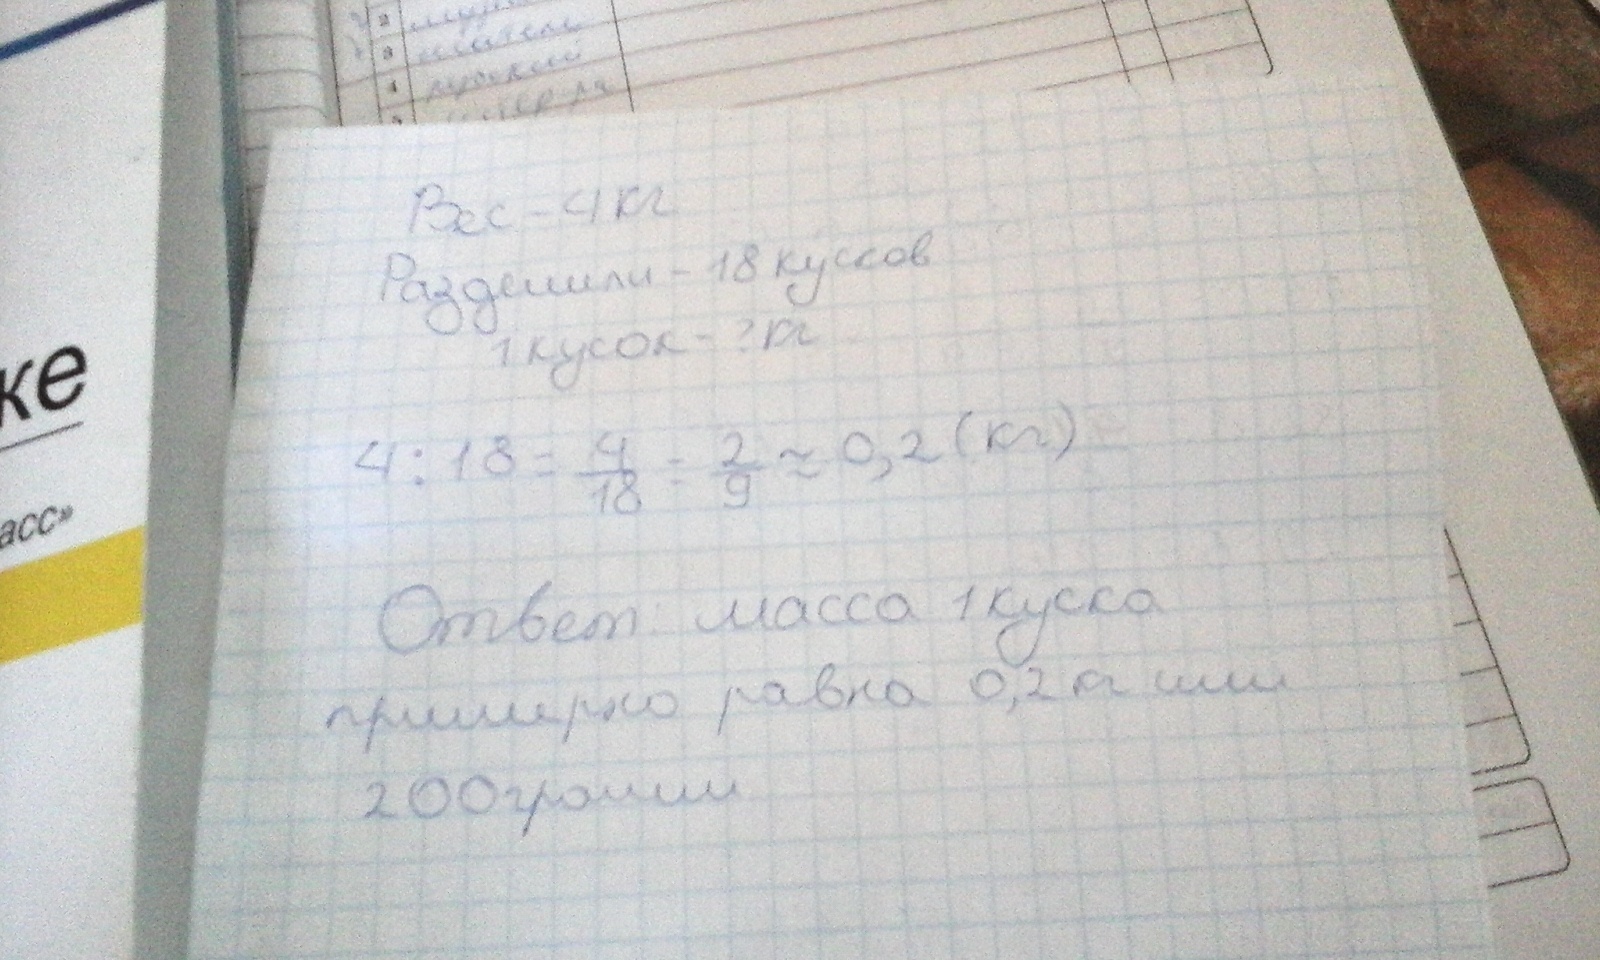 2
3
4
ке
асс»
Вес - 4 кг
Разделили - 18 кусков
1 кусок - ? кг
4 : 18 = 4/18 = 2/9 ≈ 0,2 (кг)
Ответ: масса 1 куска
примерно равна 0,2 кг или
200 грамм